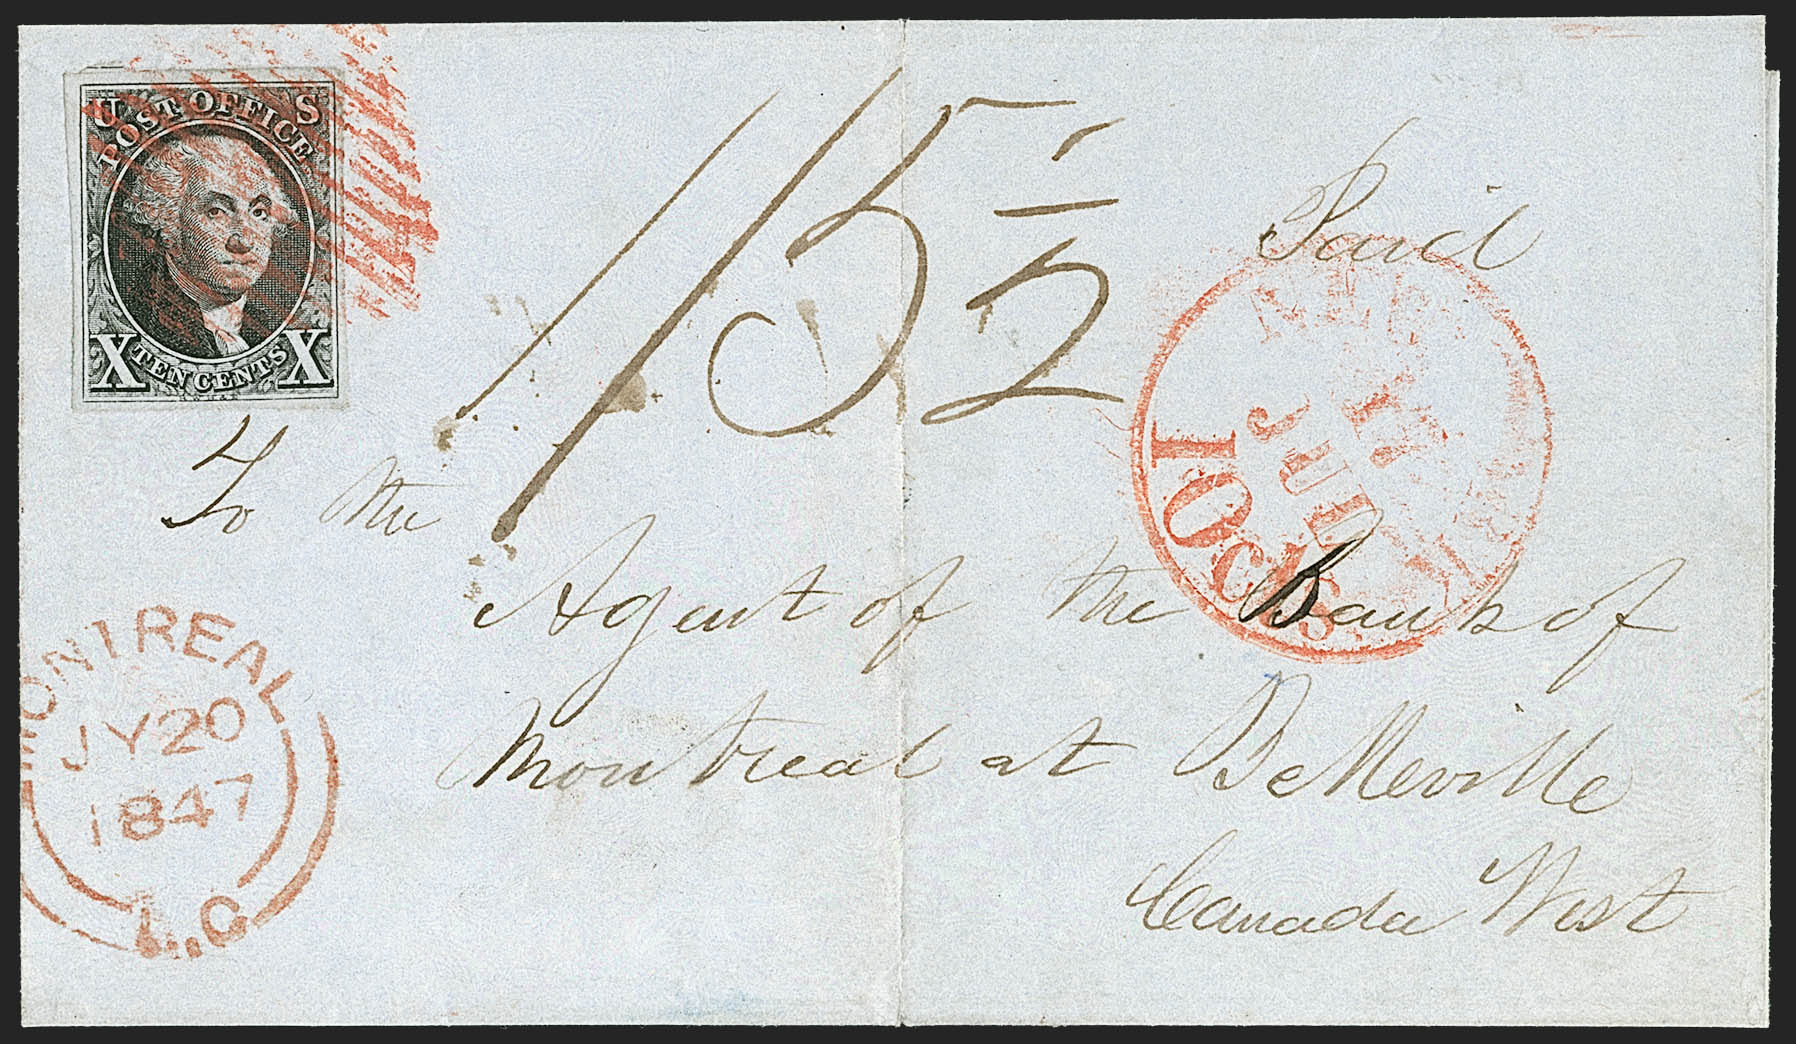 U S
POST OFFICE
X TEN CENTS X
1/5½
Paid
NEW-YORK
17 JUL
10cts
To the
Agent of the Bank of
Montreal at Belleville
Canada West
MONTREAL
JY 20
1847
L.C